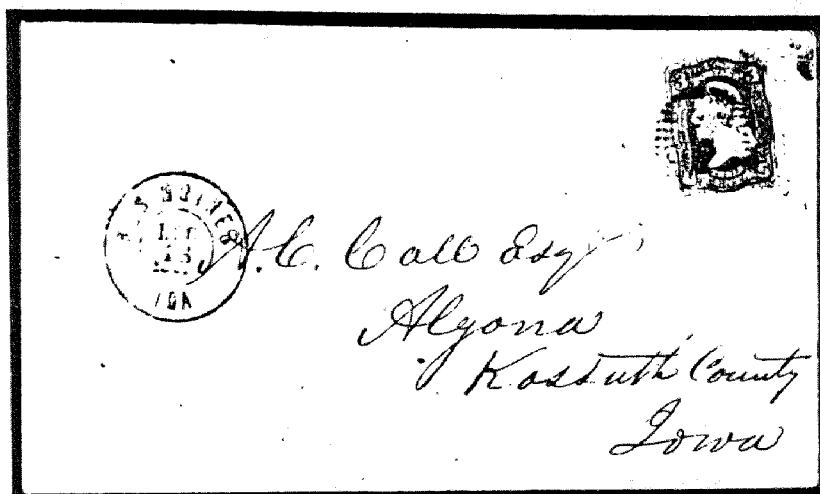 DES MOINES
IOA
A. C. Call Esq
Algona
Kossuth County
Iowa